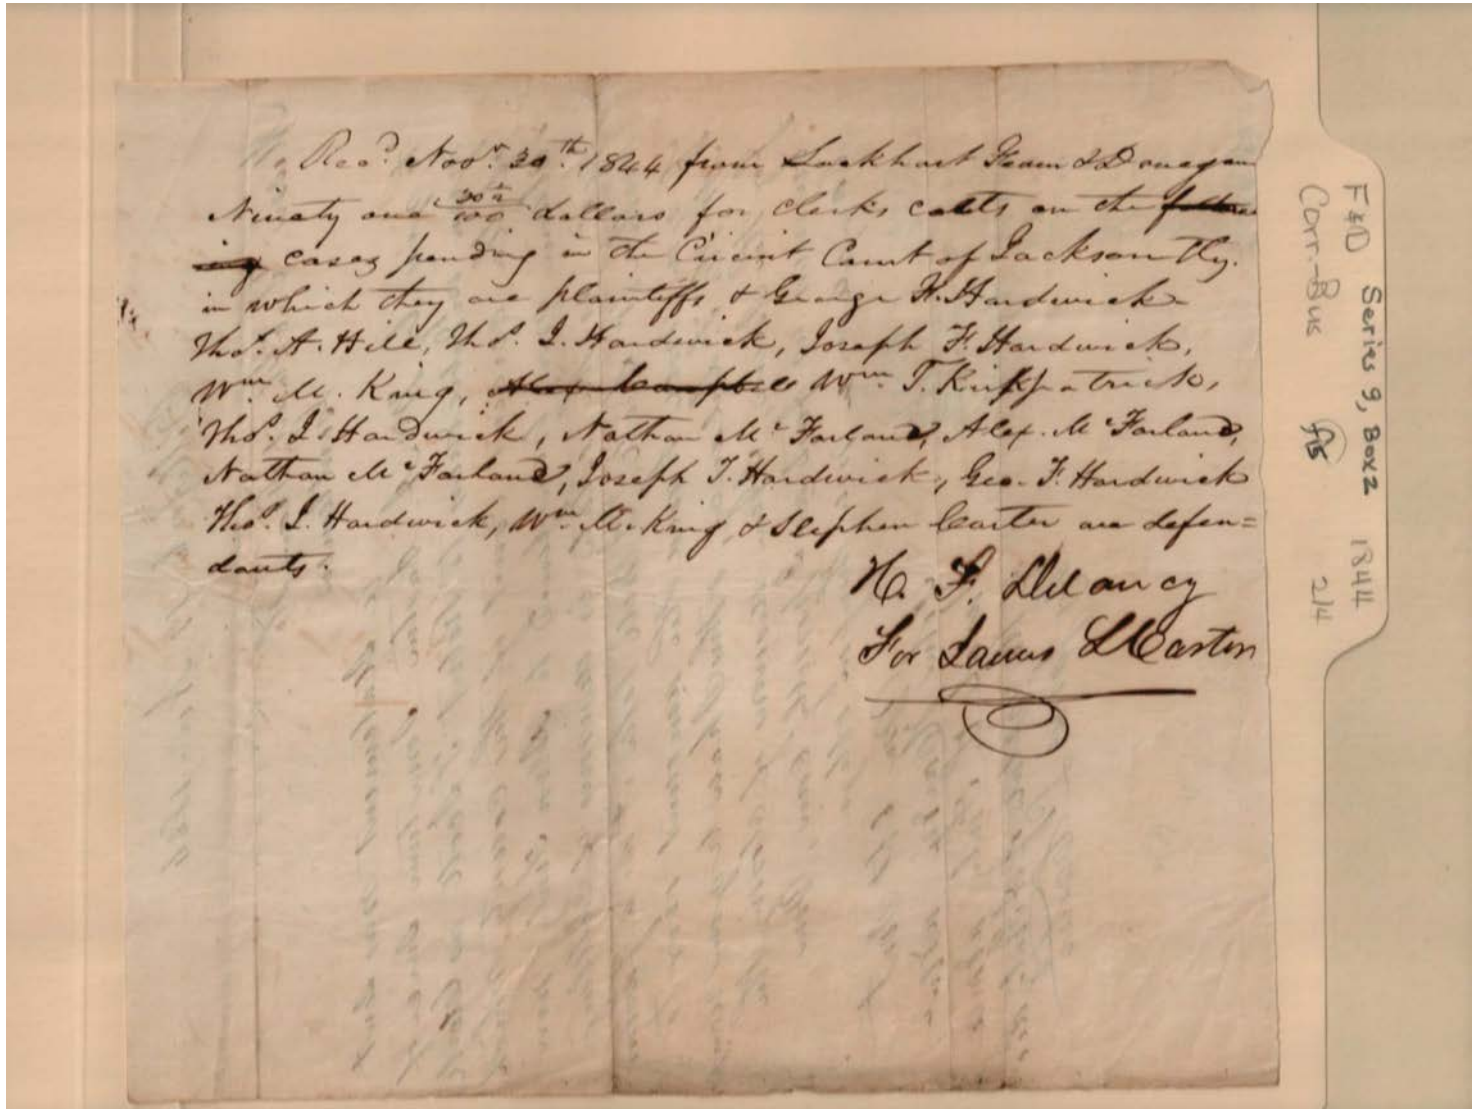 Recd. Novr. 30th. 1844 from Lockhart Fearn & Donegan
Ninety one 30/100 dollars for clerk's costs on the follow
ing cases pending in the Circuit Court of Jackson Cty.
in which they are plaintiffs & George H. Hardwick
Thos. A. Hill, Thos. I. Hardwick, Joseph F. Hardwick,
Wm M. King, Alex Campbell Wm T. Kirkpatrick,
Thos. I. Hardwick, Nathan McFarland, Alex. McFarland,
Nathan McFarland, Joseph T. Hardwick, Geo. F. Hardwick
Thos. I. Hardwick, Wm M. King & Stephen Carter are defen=
dants.
H. F. Delancy
For James
F&D Series 9, Box 2 1844
Corr.-Bus 2/4